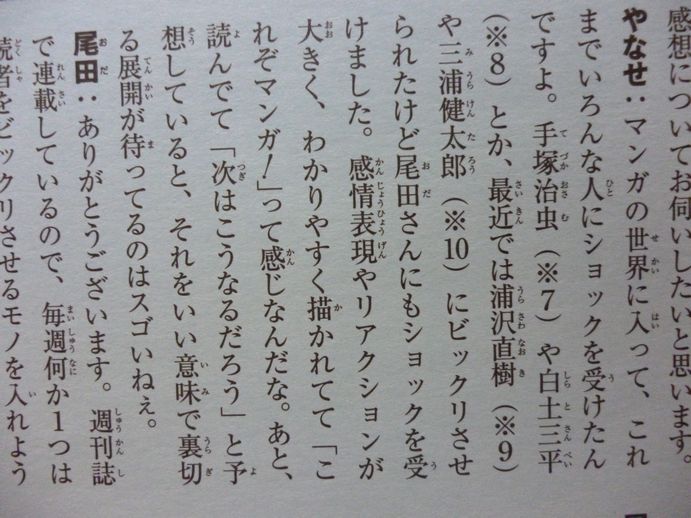 感想についてお伺いしたいと思います。
やなせ：マンガの世界に入って、これ
までいろんな人にショックを受けたん
ですよ。手塚治虫（※7）や白土三平
（※8）とか、最近では浦沢直樹（※9）
や三浦健太郎（※10）にビックリさせ
られたけど尾田さんにもショックを受
けました。感情表現やリアクションが
大きく、わかりやすく描かれてて「こ
れぞマンガ！」って感じなんだな。あと、
読んでて「次はこうなるだろう」と予
想していると、それをいい意味で裏切
る展開が待ってるのはスゴいねぇ。
尾田：ありがとうございます。週刊誌
で連載しているので、毎週何か1つは
読者をビックリさせるモノを入れよう